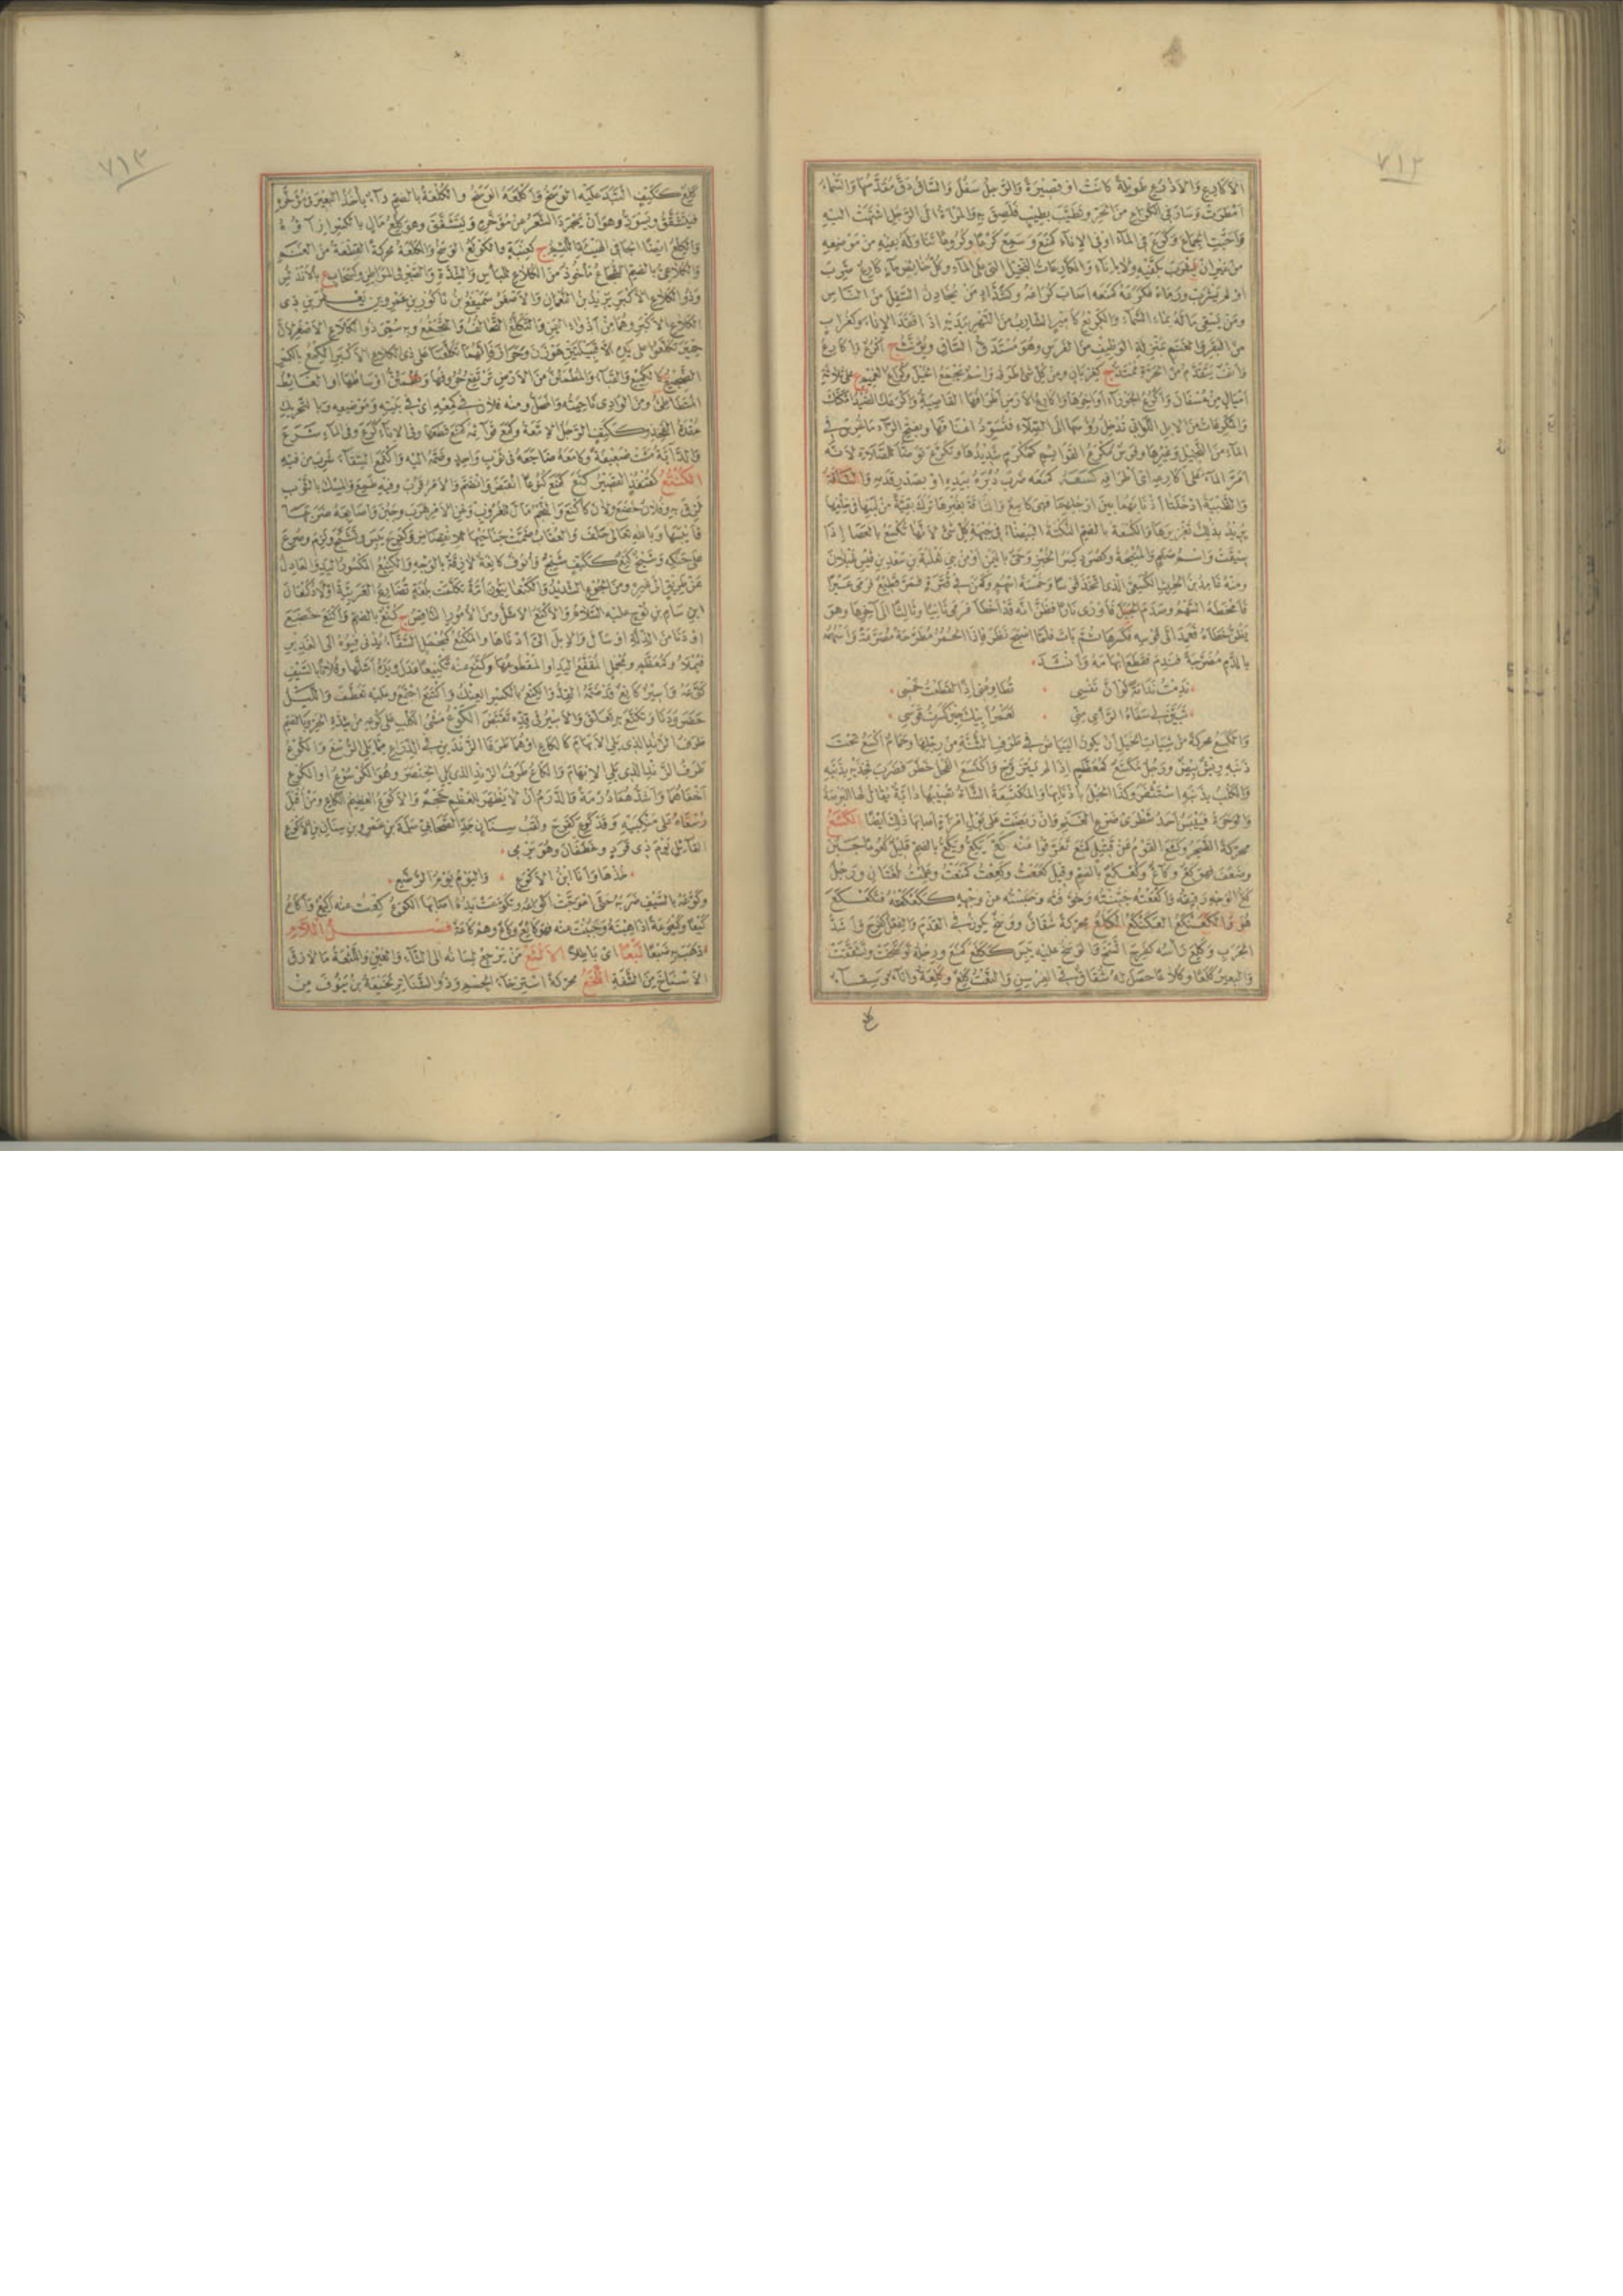 ٧١٢
الاكارع والاذرع طويلة كانت او قصيرة والرجل سفل والساق دق مقدمها والسماء
امطرت وسار في الكراع من الحرة وتطيب بطيب فلصق به والمرأة الى الرجل اشتهت اليه
واحبت الجماع وكرع في الماء او في الاناء كمنع وسمع كرعا وكروعا تناوله بفيه من موضعه
من غير ان يشرب بكفيه ولا باناء والكارعات النخيل التي على الماء وكل خائض ماء كارع شرب
او لم يشرب ورماه فكرعه كمنعه اصاب كراعه وكشداد من يخادن السفل من الناس
ومن يسقي ماله بماء السماء والكريع كامير الشارب من النهر بيديه اذا افتقد الاناء وكغراب
من البقر والغنم بمنزلة الوظيف من الفرس وهو مستدق الساق ويؤنث ج اكرع واكارع
وانف يتقدم من الحرة ممتد ج كغربان ومن كل شئ طرفه واسم يجمع الخيل وكراع الغميم ع على ثلاثة
اميال من عسفان واكرع الجوزاء اواخرها واكارع الارض اطرافها القاصية واكرعك الصيد امكنك
والمكرعات من الابل اللواتي تدخل رؤسها الى الصلاء فتسود اعناقها وبفتح الراء ما غرس في
الماء من النخيل وغيرها وفرس مكرع القوائم كمكرم شديدها وتكرع توضأ للصلاة لانه
امر الماء على اكارعه اي اطرافه كسعه كمنعه ضرب دبره بيده او بصدر قدمه والناقة
والظبية ادخلتا اذنابهما بين ارجلهما فهي كاسع والناقة بغبرها ترك بقية من لبنها في خلفها
يريد بذلك تغزيرها والكسعة بالضم النكتة البيضاء في جبهة كل شئ لانها تكسع بالعصا اذا
سيقت واسم صنم والمنيحة وكصرد كسر الخبز وحي باليمن او من بني ثعلبة بن سعد بن قيس عيلان
ومنه غامد بن الحرث الكسعي الذي اتخذ قوسا وخمسة اسهم وكمن في قترة فمر قطيع فرمى عيرا
فامخطه السهم وصدم الجبل فاورى نارا فظن انه قد اخطأ فرمى ثانيا وثالثا الى آخرها وهو
يظن خطاءه فعمد الى قوسه فكسرها ثم بات فلما اصبح نظر فاذا الحمر مطرحة مصرعة واسهمه
بالدم مضرجة فندم فقطع ابهامه وانشد
ندمت ندامة لو ان نفسي تطاوعني اذا لقطعت خمسي
تبين لي سفاه الراي مني لعمر ابيك حين كسرت قوسي
والكسع محركة من شيات الخيل ان يكون البياض في طرف الثنة من رجلها وحمام اكسع تحت
ذنبه ريش بيض ورجل مكسع كمعظم اذا لم يتزوج واكتسع الفحل خطر فضرب فخذيه بذنبه
والكلب بذنبه استثفر وكذا الخيل باذنابها والمكتسعة الشاة تصيبها دابة يقال لها البرصة
والوحرة فييبس احد شطري ضرع الغنم وان ربضت على بول امرأة اصابها ذلك ايضا الكشع
محركة الضجر وكشع القوم عن قتيل كمنع تفرقوا عنه كع يكع ويكع بالضم قليل كعوعا جبن
وضعف فهو كع وكاع وكعكع بالضم وقيل كععت وكععت كمنعت وعلمت لغتان ورجل
كع الوجه رقيقه واكععته جبنته وخوفته وحبسته عن وجهه ككعكعته فتكعكع
هو والكعنكع العكنكع الكلع محركة شقاق ووسخ يكون في القدم والفعل كفرح واشد
الجرب وكلع رأسه كفرح اتسخ والوسخ عليه يبس ككلع كمنع ورجله توسخت وتشققت
والبعير كلعا وكلاعا حصل له شقاق في الفرسن والنعت كلع وكلعة واناء وسقاء
كلع
٧١٣
كلع ككتف التبد عليه الوسخ واكلعه الوسخ والكلعة بالضم داء ياخذ البعير في مؤخره
فيتشقق ويسود وهو ان يجرد الشعر عن مؤخره ويتشقق وهو كلع مال بالكسر ازاؤه
والكلع ايضا الجافي الهيئة اللئيم ج كعنبة والكولع الوسخ والكلعة محركة القطعة من الغنم
والكلاعي بالضم الشجاع ماخوذ من الكلاع للباس والشدة والصبر في المواطن وكسحاب ع بالاندلس
وذو الكلاع الاكبر يزيد بن النعمان والاصغر سميفع بن ناكور بن عمرو بن يعفر بن ذي
الكلاع الاكبر وهما من اذواء اليمن والتكلع التحالف والتجمع وبه سمى ذو الكلاع الاصغر لان
حمير تكلعوا على يده الا قبيلتين هوازن وحراز فانهما تكلعتا على ذي الكلاع الاكبر الكمع بالكسر
الضجيع كالكميع والقباء والمطمئن من الارض ترتفع حروفها وتطمئن اوساطها او الغائط
المتطاطئ ومن الوادي ناحيته والمحل ومنه فلان في كمعه اي في بيته وموضعه وبالتحريك
عقدة الفخذ وككتف الرجل الامعة وكمع قوائمه كمنع قطعها وفي الاناء كرع وفي الماء شرع
والدابة مشت ضعيفة وكامعه ضاجعه في ثوب واحد وضمه اليه واكتمع السقاء شرب من فيه
الكنتع كقنفذ القصير كنع كمنع كنوعا انقبض وانضم والامر قرب وفيه طمع والمسك بالثوب
لزق به وفلان خضع ولان كاكنع والنجم مال للغروب وعن الامر هرب وجبن واصابعه ضربها
فايبسها وبالله تعالى حلف والعقاب ضمت جناحيها للانقضاض وكفرح يبس وتشنج ولزم وصرع
على حنكه وشيخ كنع ككتف شنج وانوف كانعة لازقة بالوجه والكنيع المكسور اليد والعادل
عن طريق الى غيره ومن الجوع الشديد والكنعانيون امة تكلمت بلغة تضارع العربية اولاد كنعان
ابن سام بن نوح عليه السلام والاكنع الاشل ومن الامور الناقص ج كنع بالضم واكنع خضع
او دنا من الذلة او سأل والابل الى ادناها والمكنع كمجمل السقاء يدنى فوه الى الغدير
فيملأ وكمعظم ومجمل المقفع اليد او المقطوعها وكنع عنه تكنيعا عدل ويده اشلها وفلانا بالسيف
كوعه واسير كانع قد ضمه القد والكنع بالكسر العنك واكتنع اجتمع وعليه تعطف والليل
حضر ودنا وتكنع به تعلق والاسير في قده تقبض الكوع مشى الكلب على كوعه من شدة الحر وبالضم
طرف الزند الذي يلي الابهام كالكاع او هما طرفا الزندين في الذراع مما يلي الرسغ والكوع
طرف الزند الذي يلي الابهام والكاع طرف الزند الذي يلي الخنصر وهو الكرسوع او الكوع
اخفاهما واشدهما درمة والدرم ان لا يظهر للعظم حجم والاكوع العظيم الكاع ومن اقبل
رسغاه على منكبيه وقد كوع كفرح ولقب سنان جد الصحابي سلمة بن عمرو بن سنان بن الاكوع
القائل يوم ذي قرد وغطفان وهو يرمي
خذها وانا ابن الاكوع واليوم يوم الرضع
وكوعه بالسيف ضربه حتى اعوجت اكواعه وتكوعت يده اصابها الكوع كعت عنه اكيع واكاع
كيعا وكيعوعة اذا هبته وجبنت عنه فهو كائع وكاع وهم كاعة فصل اللام
ذهب به ضبعا لبعا اي باطلا الالثع من يرجع لسانه الى الثاء والعين واللثعة ما لازق
الاسناخ من الشفة اللخع محركة استرخاء الجسم وذو الشناتر لخيعة بن ينوف من